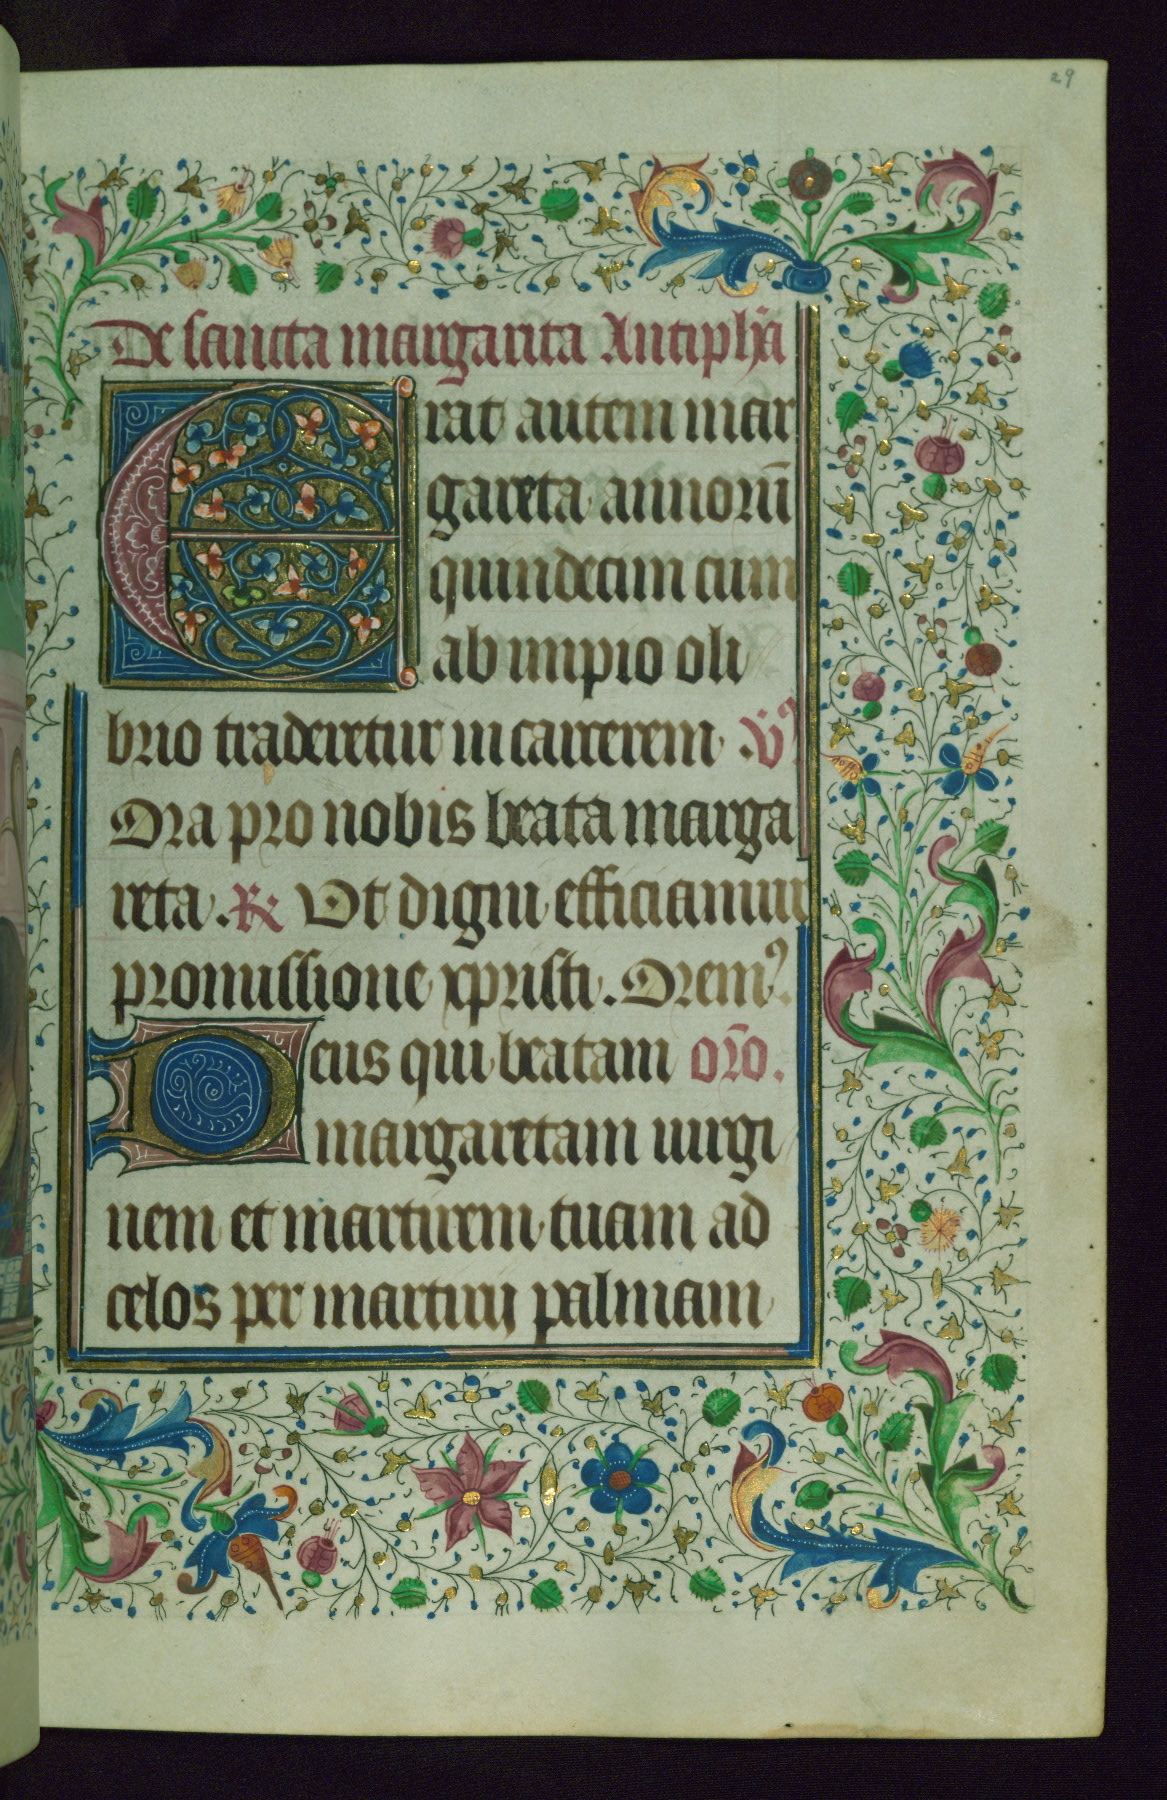 29
De sancta margarita Antiph̃a
Erat autem mar
gareta annorū
quindecim cum
ab impio oli
brio traderetur in carcerem. V̉
Ora pro nobis beata marga
reta. R. Vt digni efficiamur
promissione xpristi. Orem⁹.
Deus qui beatam or̄o.
margaretam uirgi
nem et martirem tuam ad
celos per martirij palmam